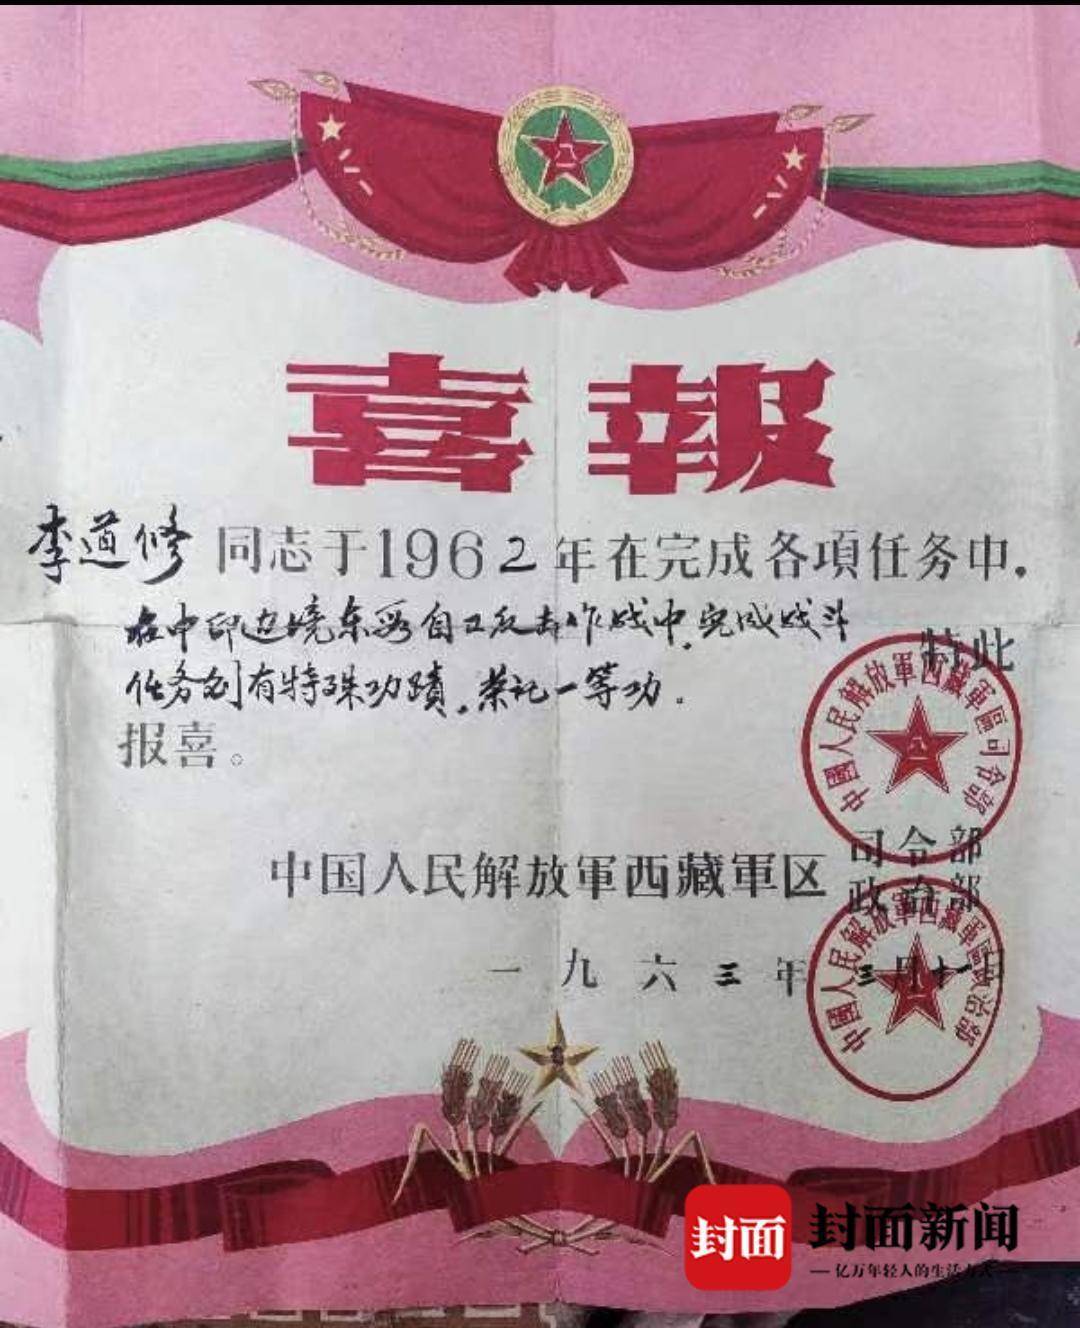 喜報
李道修 同志于1962年在完成各項任务中.
在中印边境东段自卫反击作战中,完成战斗
特此
任务创有特殊功蹟,荣记一等功。
报喜。
中国人民解放軍西藏軍区 司令部
政治部
一九六三年三月十一日
中國人民解放軍西藏軍區司令部
中國人民解放軍西藏軍區政治部
封面
封面新闻
亿万年轻人的生活方式